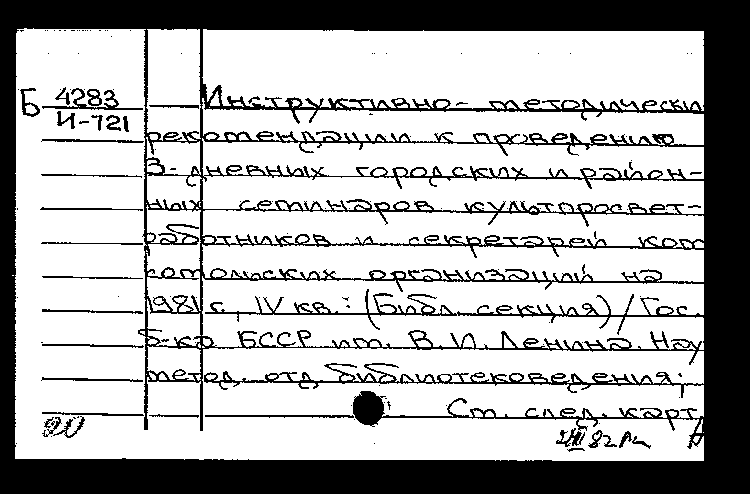 Б 4283 Инструктивно-методически
И-721
рекомендации к проведению
3-дневных городских и район-
ных семинаров культпросвет-
работников и секретарей ком
сомольских организаций на
1981 г., IV кв.: (Библ. секция) / Гос.
б-ка БССР им. В. И. Ленина. Нау
метод. отд. библиотековедения;
Ст. след. карт.
20